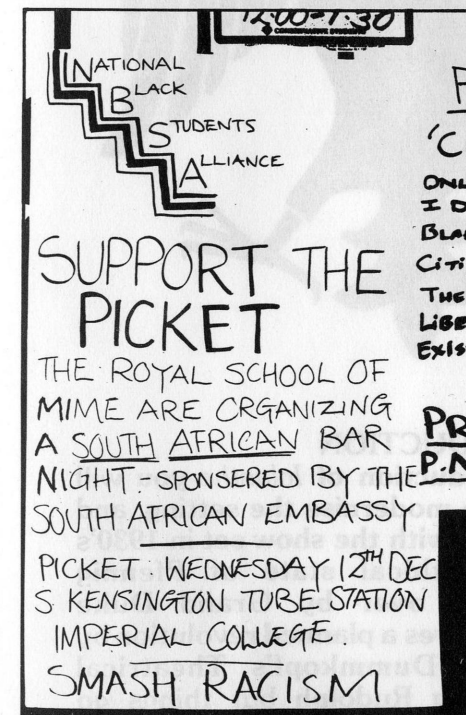 12:00-7:30
NATIONAL
BLACK
STUDENTS
ALLIANCE
SUPPORT THE
PICKET
THE ROYAL SCHOOL OF
MIME ARE ORGANIZING
A SOUTH AFRICAN BAR
NIGHT SPONSERED BY THE
SOUTH AFRICAN EMBASSY
PICKET WEDNESDAY 12TH DEC
S. KENSINGTON TUBE STATION
IMPERIAL COLLEGE
SMASH RACISM
'C
ONL
I D
BLA
CiTi
THE
LiBE
EXIS
PR
P.N